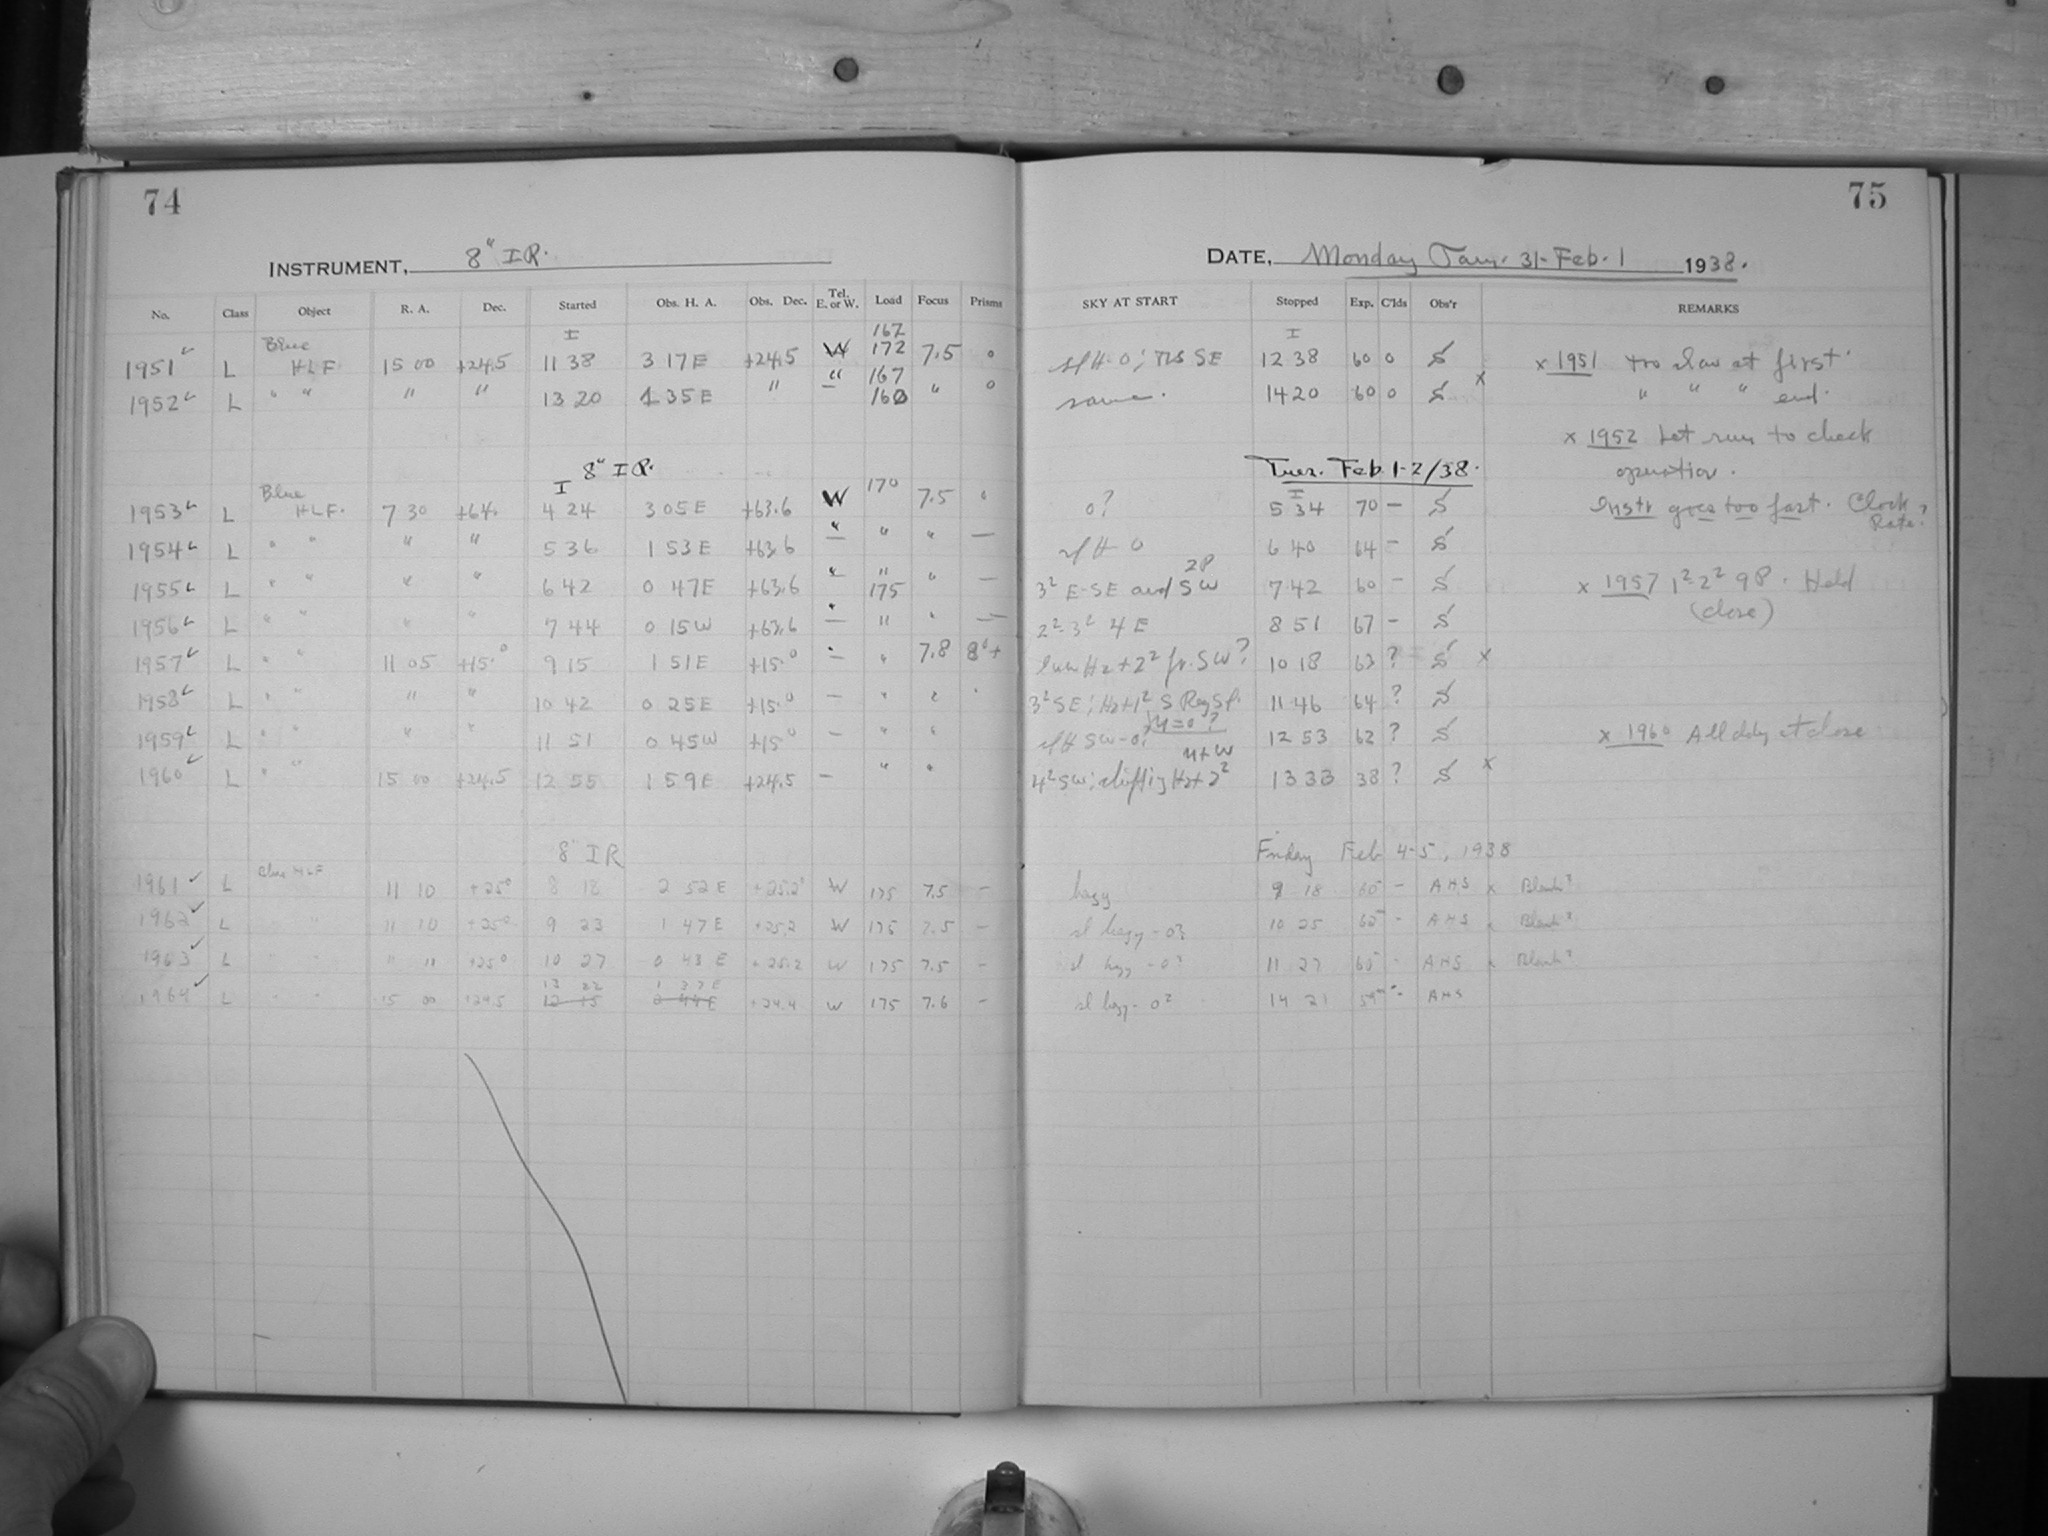 74
INSTRUMENT, 8" IR.
No. Class Object R. A. Dec. Started Obs. H. A. Obs. Dec. Tel. E. or W. Load Focus Prisms
I 162
1951 L Blue HLF 15 00 +24.5 11 38 3 17 E +24.5 W 172 7.5 0
1952 L " " " " 13 20 1 35 E " " 167 160 " 0
8" IR.
I
1953 L Blue HLF. 7 30 +64. 4 24 3 05 E +63.6 W 170 7.5
1954 L " " " " 5 36 1 53 E +63.6 " " " —
1955 L " " " " 6 42 0 47 E +63.6 " " 175 " —
1956 L " " " " 7 44 0 15 W +63.6 " " " —
1957 L " " 11 05 +15.0 9 15 1 51 E +15.0 " " 7.8
1958 L " " " " 10 42 0 25 E +15.0 — " "
1959 L " " " " 11 51 0 45 W +15.0 — " "
1960 L " " 15 00 +24.5 12 55 1 59 E +24.5 — " "
8" IR
1961 L Blue HLF 11 10 +25° 8 18 2 52 E +25.2 W 175 7.5 —
1962 L " " 11 10 +25° 9 23 1 47 E +25.2 W 175 7.5 —
1963 L " " " " +25° 10 27 0 43 E +25.2 W 175 7.5 —
13 22 1 37 E
1964 L " " 15 00 +24.5 12 15 2 44 E +24.4 W 175 7.6 —
75
DATE, Monday Jan. 31-Feb. 1 1938.
SKY AT START Stopped Exp. C'lds Obs'r REMARKS
I
sl H-0; SE 12 38 60 0 S x 1951 too slow at first.
same. 14 20 60 0 S x " " " end.
x 1952 Let run to check
operation.
Tues. Feb 1-2/38.
I
0? 5 34 70 — S Instr goes too fast. Clock Rate?
sl H 0 6 40 64 — S
2P
3² E-SE and SW 7 42 60 — S x 1957 1²-2² 9P. Held
(close)
2²-3² 4 E 8 51 67 — S
Hz+2² fr. SW? 10 18 63 ? S x
3² SE; Hz+1² S 11 46 64 ? S
sl H SW-0; 12 53 62 ? S x 1960 All at close
N+W
4² SW; Hz+2² 13 33 38 ? S x
Friday Feb 4-5, 1938
hazy 9 18 60 — AHS x Blank?
sl hazy - 0? 10 25 62 — AHS x Blank?
sl hazy - 0? 11 27 60 - AHS x Blank?
sl hazy - 0? 14 21 59 - AHS